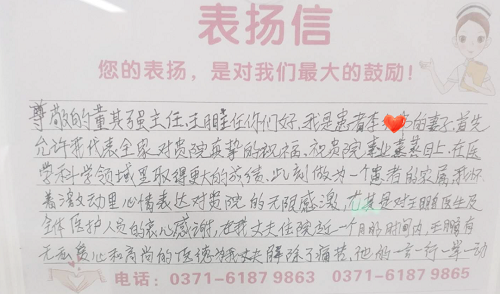 表扬信
您的表扬，是对我们最大的鼓励！
尊敬的董其强主任、王鹏主任你们好，我是患者李 的妻子首先
允许我代表全家对贵院真挚的祝福，祝贵院事业蒸蒸日上，在医
学科学领域里取得更大的成绩，此刻做为一个患者的家属，我怀
着激动心情表达对贵院的无限感激，尤其是对王鹏医生及
全体医护人员的衷心感谢，在我丈夫住院近一个月的时间内，王鹏有
无私爱心和高尚的医德为我丈夫解除了痛苦，他的一言一行一举一动
电话：0371-6187 9863 0371-6187 9865